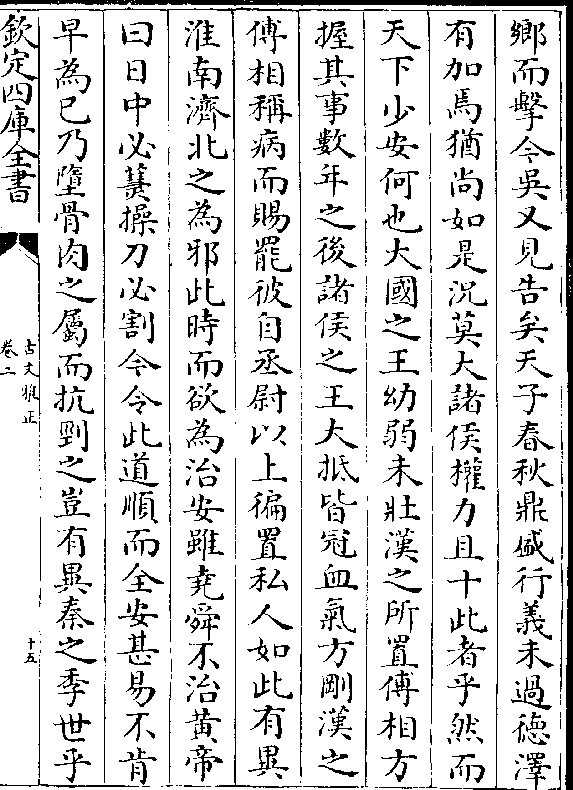 鄉而擊今吳又見告矣天子春秋鼎盛行義未過徳澤
有加焉猶尚如是况莫大諸侯權力且十此者乎然而
天下少安何也大國之王幼弱未壯漢之所置傅相方
握其事數年之後諸侯之王大抵皆冠血氣方剛漢之
傅相稱病而賜罷彼自丞尉以上徧置私人如此有異
淮南濟北之為邪此時而欲為治安雖堯舜不治黄帝
曰日中必熭操刀必割今令此道順而全安甚易不肯
早為已乃墮骨肉之屬而抗剄之豈有異秦之季世乎
欽定四庫全書
古文雅正
卷二
十五